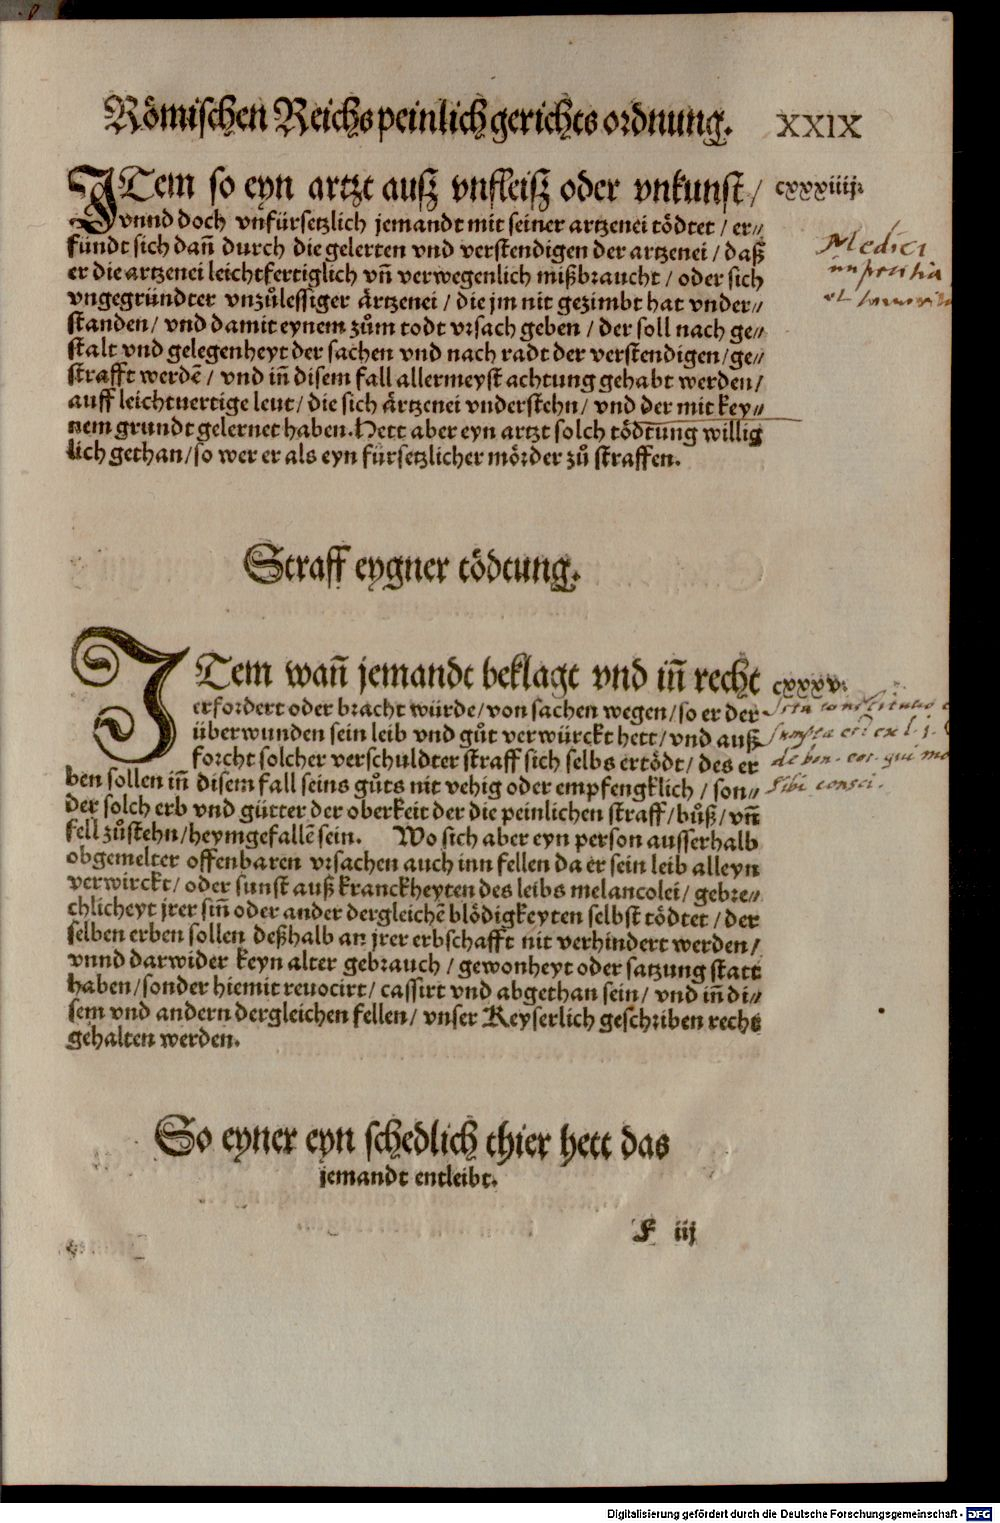 Römischen Reichs peinlich gerichts ordnung. XXIX
ITem so eyn artzt ausz vnfleisz oder vnkunst / cxxxiiij.
vnnd doch vnfürsetzlich jemandt mit seiner artzenei tödtet / er⸗
fündt sich dañ durch die gelerten vnd verstendigen der artzenei / daß
er die artzenei leichtfertiglich vñ verwegenlich mißbraucht / oder sich
vngegründter vnzůlessiger ärtzenei / die jm nit gezimbt hat vnder⸗
standen / vnd damit eynem zům todt vrsach geben / der soll nach ge⸗
stalt vnd gelegenheyt der sachen vnd nach radt der verstendigen / ge⸗
strafft werdē / vnd iñ disem fall allermeyst achtung gehabt werden /
auff leichtuertige leut / die sich ärtzenei vnderstehn / vnd der mit key⸗
nem grundt gelernet haben. Hett aber eyn artzt solch tödtung willig
lich gethan / so wer er als eyn fürsetzlicher mörder zů straffen.
Medici
imperitia
vt
Straff eygner tödtung.
ITem wañ jemandt beklagt vnd iñ recht cxxxv.
erfordert oder bracht würde / von sachen wegen / so er der
überwunden sein leib vnd gůt verwürckt hett / vnd auß
forcht solcher verschuldter straff sich selbs ertödt / des er
ben sollen iñ disem fall seins gůts nit vehig oder empfengklich / son⸗
der solch erb vnd gütter der oberkeit der die peinlichen straff / bůß / vñ
fell zůstehn / heymgefallē sein. Wo sich aber eyn person ausserhalb
obgemelter offenbaren vrsachen auch inn fellen da er sein leib alleyn
verwirckt / oder sunst auß kranckheyten des leibs melancolei / gebre⸗
chlicheyt jrer siñ oder ander dergleichē blödigkeyten selbst tödtet / der
selben erben sollen deßhalb an jrer erbschafft nit verhindert werden /
vnnd darwider keyn alter gebrauch / gewonheyt oder satzung statt
haben / sonder hiemit reuocirt / cassirt vnd abgethan sein / vnd iñ di⸗
sem vnd andern dergleichen fellen / vnser Keyserlich geschriben recht
gehalten werden.
Ista constitutio
sumpta est ex l. 3.
de bon. eor. qui mo
sibi consci.
So eyner eyn schedlich thier hett das
jemandt entleibt.
F iij
Digitalisierung gefördert durch die Deutsche Forschungsgemeinschaft - DFG